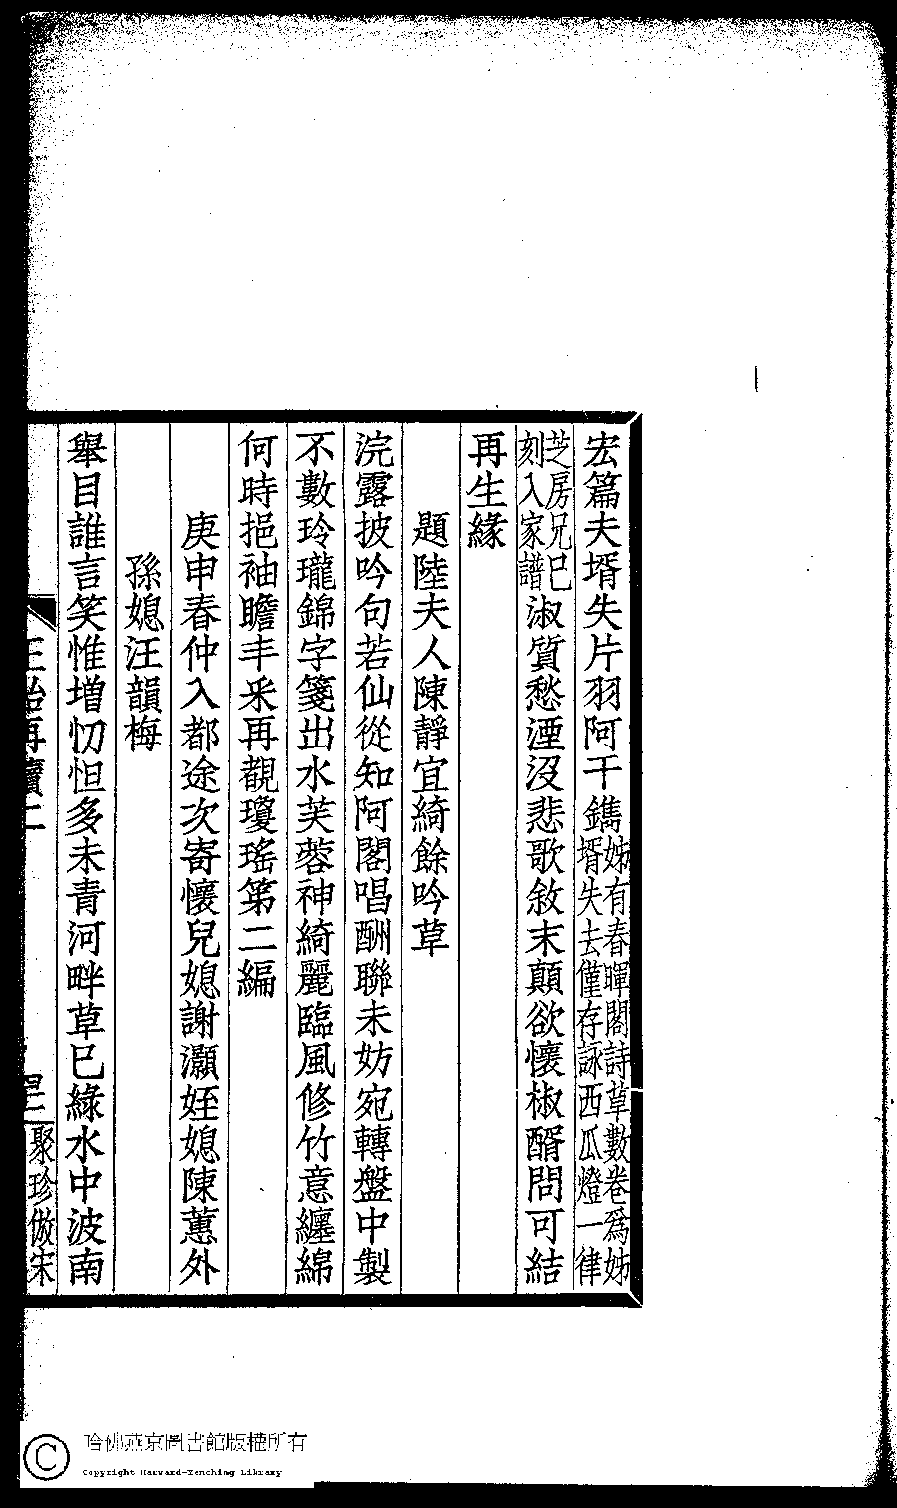 宏篇夫壻失片羽阿干鐫姊有春暉閣詩草數卷爲姊壻失去僅存詠西瓜燈一律
芝房兄已刻入家譜淑質愁湮沒悲歌敘末顛欲懷椒醑問可結
再生緣
題陸夫人陳靜宜綺餘吟草
浣露披吟句若仙從知阿閣唱酬聯未妨宛轉盤中製
不數玲瓏錦字箋出水芙蓉神綺麗臨風修竹意纏綿
何時挹袖瞻丰采再覩瓊瑤第二編
庚申春仲入都途次寄懷兒媳謝灝姪媳陳蕙外
孫媳汪韻梅
舉目誰言笑惟增忉怛多未青河畔草已綠水中波南
聚珍倣宋
哈佛燕京圖書館版權所有
Copyright Harvard-Yenching Library